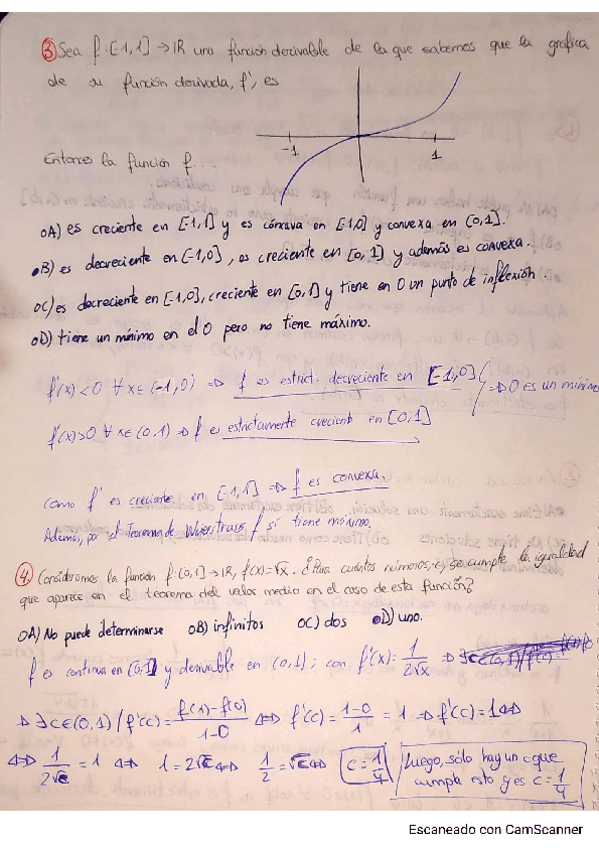 ③ Sea f:[-1,1] → IR una función derivable de la que sabemos que la gráfica
de su función derivada, f', es
-1
1
Entonces la función f...
oA) es creciente en [-1,1] y es cóncava en [-1,0] y convexa en [0,1].
●B) es decreciente en [-1,0], es creciente en [0,1] y además es convexa.
oC) es decreciente en [-1,0], creciente en [0,1] y tiene en 0 un punto de inflexión.
oD) tiene un mínimo en el 0 pero no tiene máximo.
f'(x)<0 ∀x∈(-1,0) ⇒ f es estrict. decreciente en [-1,0] ⇒ 0 es un mínimo
f'(x)>0 ∀x∈(0,1) ⇒ f es estrictamente creciente en [0,1]
Como f' es creciente en [-1,1] ⇒ f es convexa.
Además, por el Teorema de Weierstrass, f sí tiene máximo.
④ Consideramos la función f:[0,1] → IR, f(x)=√x. ¿Para cuántos números, c, se cumple la igualdad
que aparece en el teorema del valor medio en el caso de esta función?
oA) No puede determinarse oB) infinitos oC) dos ●D) uno.
f es continua en [0,1] y derivable en (0,1); con f'(x)=1/2√x
⇒ ∃c∈(0,1) / f'(c)=f(1)-f(0)/1-0 ⇔ f'(c)=1-0/1=1 ⇒ f'(c)=1 ⇔
⇔ 1/2√c = 1 ⇔ 1=2√c ⇔ 1/2=√c ⇔ c=1/4
Luego, sólo hay un c que
cumpla esto y es c=1/4
Escaneado con CamScanner